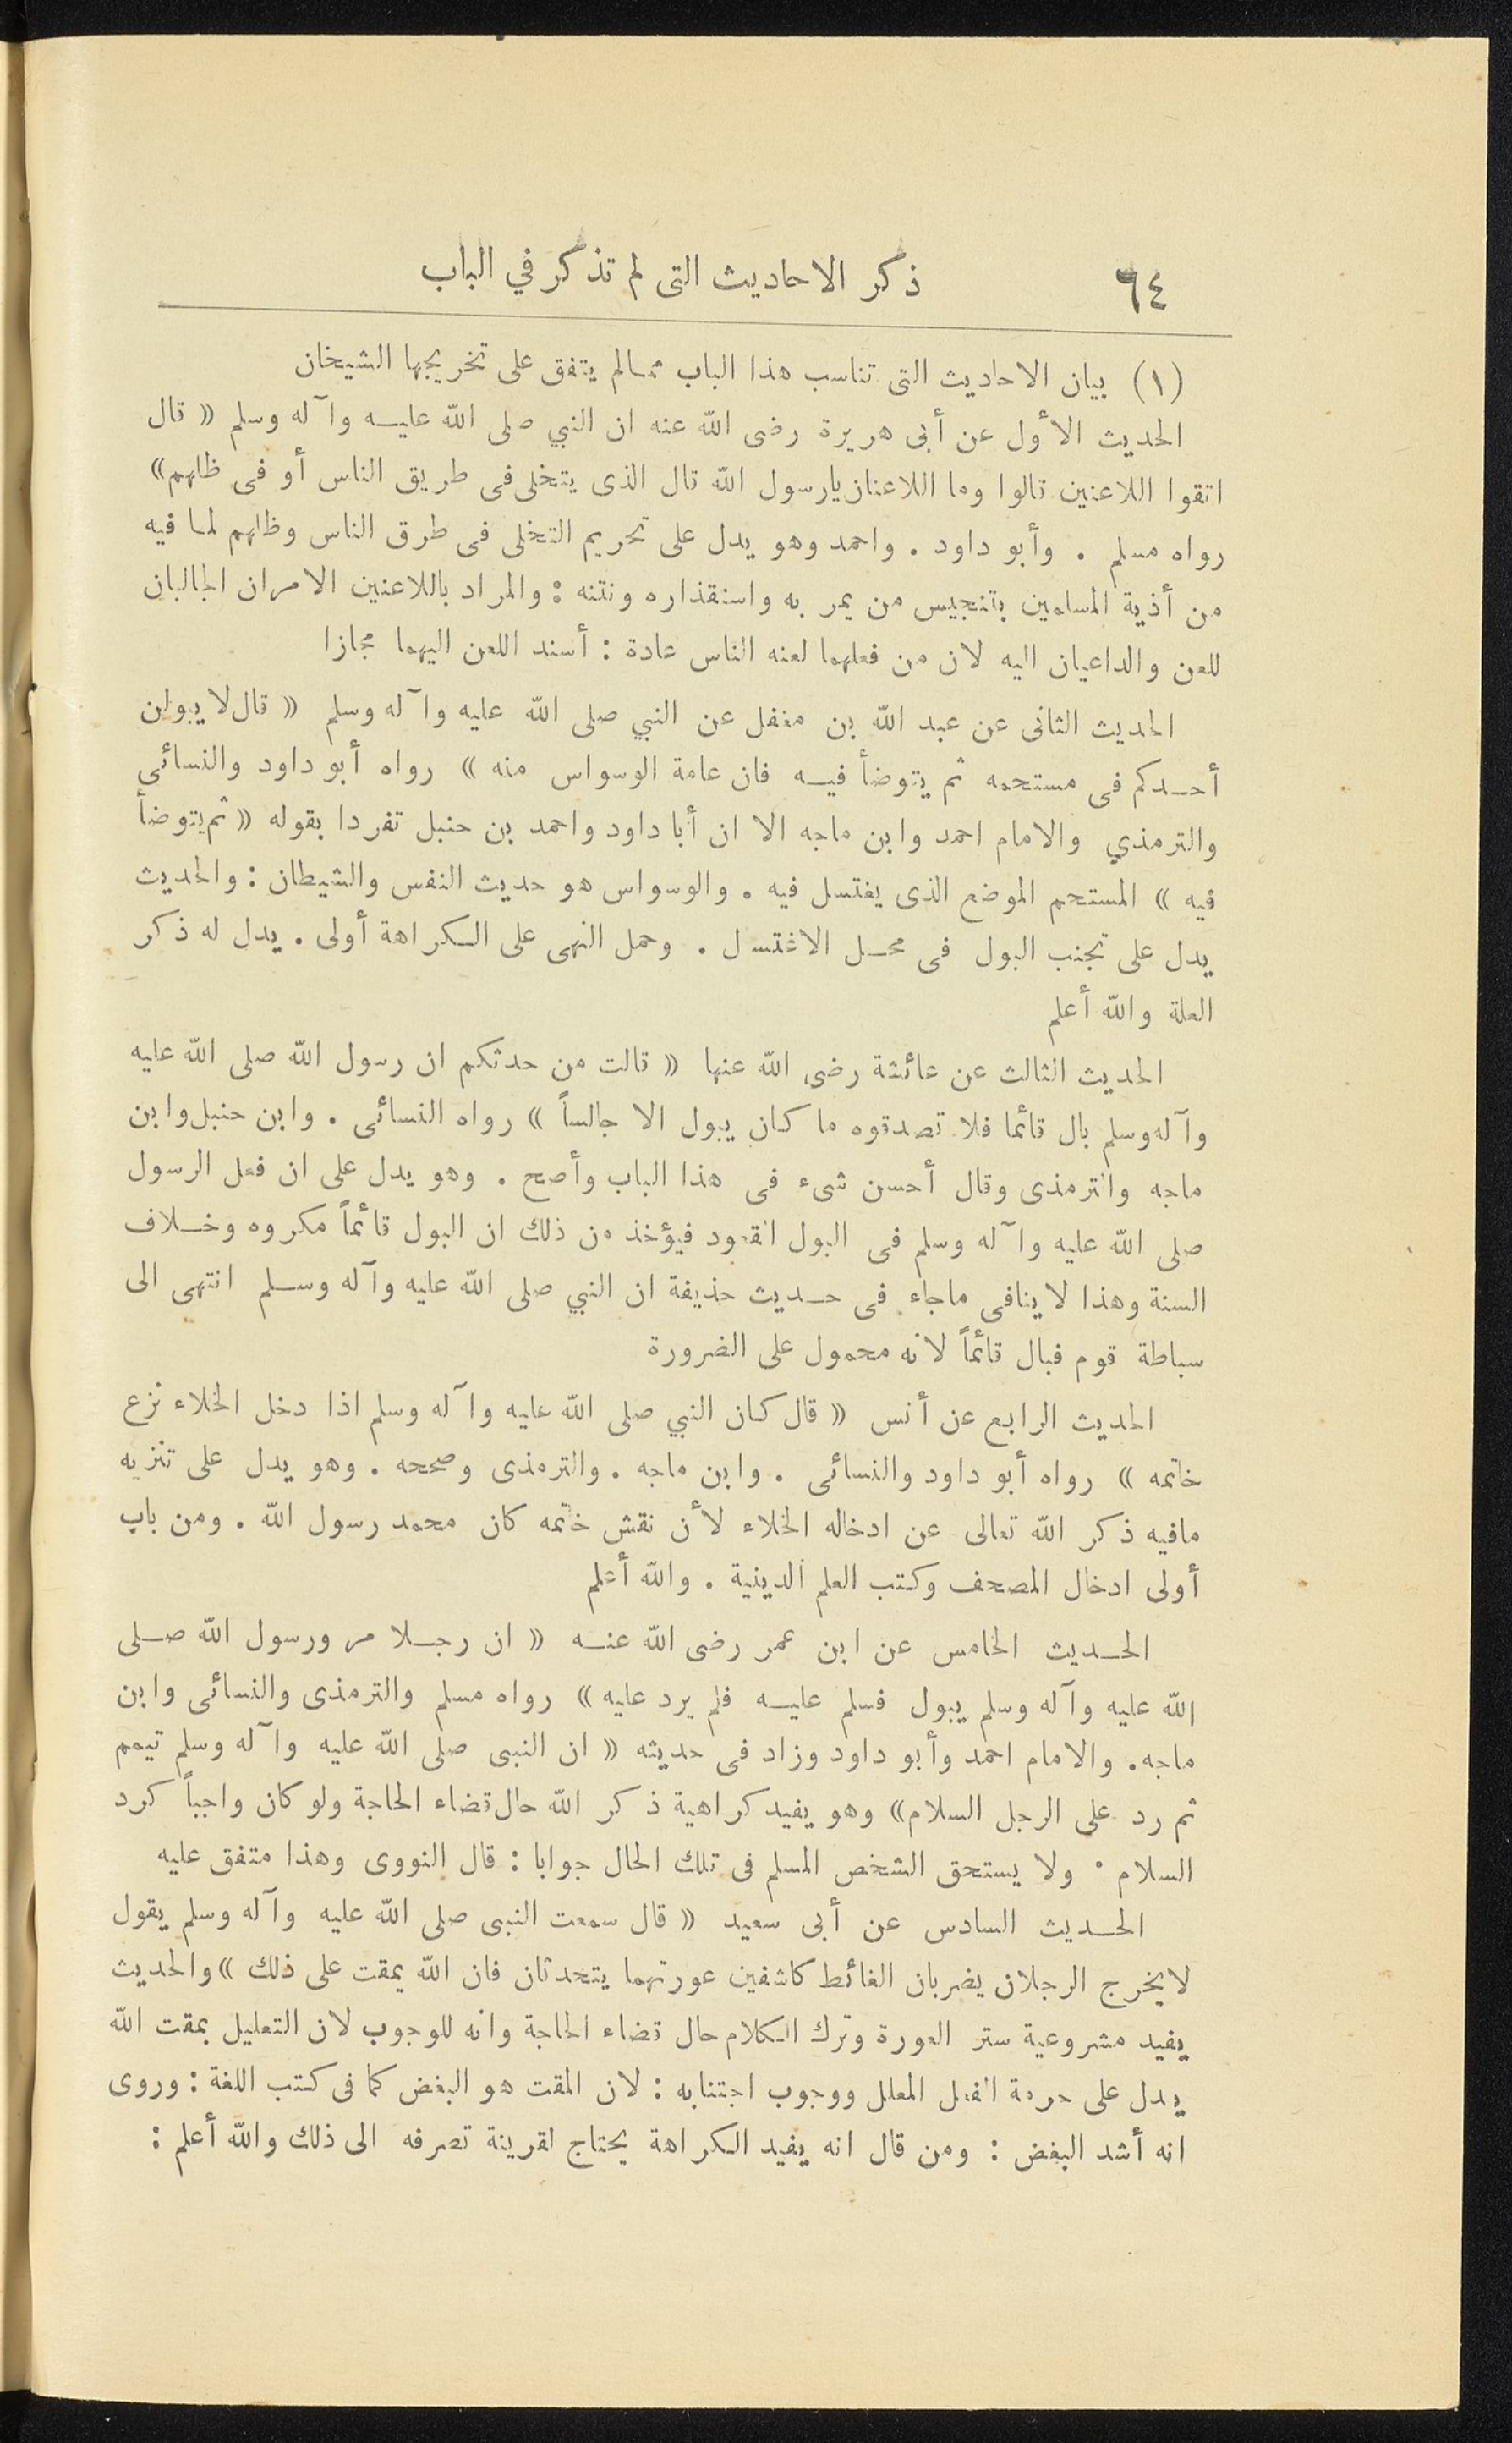 ٦٤
ذكر الاحاديث التى لم تذكر في الباب
(١) بيان الاحاديث التى تناسب هذا الباب ممالم يتفق على تخريجها الشيخان
الحديث الأول عن أبى هريرة رضى الله عنه ان النبي صلى الله عليه وآله وسلم « قال
اتقوا اللاعنين قالوا وما اللاعنان يارسول الله قال الذى يتخلى فى طريق الناس أو فى ظلهم»
رواه مسلم . وأبو داود . واحمد وهو يدل على تحريم التخلى فى طرق الناس وظلهم لما فيه
من أذية المسلمين بتنجيس من يمر به واستقذاره ونتنه : والمراد باللاعنين الامران الجالبان
للعن والداعيان اليه لان من فعلهما لعنه الناس عادة : أسند اللعن اليهما مجازا
الحديث الثانى عن عبد الله بن مغفل عن النبي صلى الله عليه وآله وسلم « قال لا يبولن
أحدكم فى مستحمه ثم يتوضأ فيه فان عامة الوسواس منه » رواه أبو داود والنسائى
والترمذي والامام احمد وابن ماجه الا ان أبا داود واحمد بن حنبل تفردا بقوله « ثم يتوضأ
فيه » المستحم الموضع الذى يغتسل فيه . والوسواس هو حديث النفس والشيطان : والحديث
يدل على تجنب البول فى محل الاغتسل . وحمل النهى على الكراهة أولى . يدل له ذكر
العلة والله أعلم
الحديث الثالث عن عائشة رضى الله عنها « قالت من حدثكم ان رسول الله صلى الله عليه
وآله وسلم بال قائما فلا تصدقوه ما كان يبول الا جالساً » رواه النسائى . وابن حنبل وابن
ماجه والترمذى وقال أحسن شىء فى هذا الباب وأصح . وهو يدل على ان فعل الرسول
صلى الله عليه وآله وسلم فى البول القعود فيؤخذ من ذلك ان البول قائماً مكروه وخلاف
السنة وهذا لا ينافى ماجاء فى حديث حذيفة ان النبي صلى الله عليه وآله وسلم انتهى الى
سباطة قوم فبال قائماً لانه محمول على الضرورة
الحديث الرابع عن أنس « قال كان النبي صلى الله عليه وآله وسلم اذا دخل الخلاء نزع
خاتمه » رواه أبو داود والنسائى . وابن ماجه . والترمذى وصححه . وهو يدل على تنزيه
مافيه ذكر الله تعالى عن ادخاله الخلاء لأن نقش خاتمه كان محمد رسول الله . ومن باب
أولى ادخال المصحف وكتب العلم الدينية . والله أعلم
الحديث الخامس عن ابن عمر رضى الله عنه « ان رجلا مر ورسول الله صلى
الله عليه وآله وسلم يبول فسلم عليه فلم يرد عليه » رواه مسلم والترمذى والنسائى وابن
ماجه . والامام احمد وأبو داود وزاد فى حديثه « ان النبى صلى الله عليه وآله وسلم تيمم
ثم رد على الرجل السلام» وهو يفيد كراهية ذكر الله حال قضاء الحاجة ولو كان واجباً كرد
السلام . ولا يستحق الشخص المسلم فى تلك الحال جوابا : قال النووى وهذا متفق عليه
الحديث السادس عن أبى سعيد « قال سمعت النبى صلى الله عليه وآله وسلم يقول
لا يخرج الرجلان يضربان الغائط كاشفين عورتهما يتحدثان فان الله يمقت على ذلك » والحديث
يفيد مشروعية ستر العورة وترك الكلام حال قضاء الحاجة وانه للوجوب لان التعليل بمقت الله
يدل على حرمة الفعل المعلل ووجوب اجتنابه : لان المقت هو البغض كما فى كتب اللغة : وروى
انه أشد البغض : ومن قال انه يفيد الكراهة يحتاج لقرينة تصرفه الى ذلك والله أعلم :